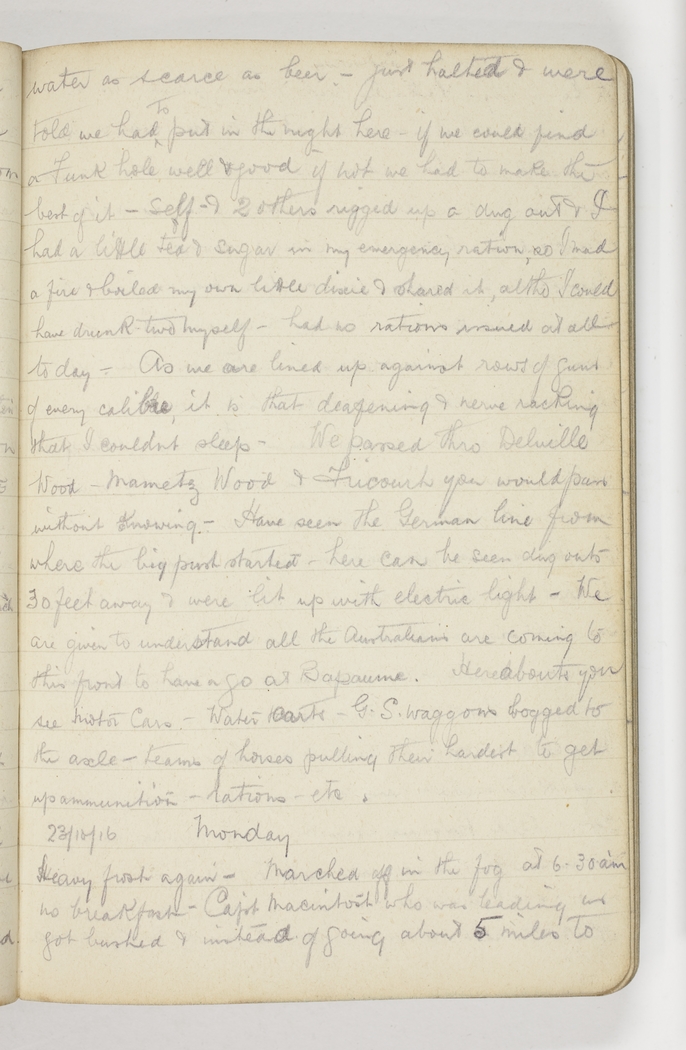 water as scarce as beer - Just halted & were
told we had to put in the night here - if we could find
a Funk hole well & good if not we had to make the
best of it - self & 2 others rigged up a dug out & I
had a little tea & sugar in my emergency ration, so I mad
a fire & boiled my own little dixie & shared it, altho I could
have drunk two myself - had no rations issued at all
today - As we are lined up against rows of guns
of every calibre, it is that deafening & nerve racking
that I couldnt sleep - We passed thro Delville
Wood - Mametz Wood & Fricourt you would pass
without knowing - Have seen the German line from
where the big push started - here can be seen dug outs
30 feet away & were lit up with electric light - We
are given to understand all the Australians are coming to
this front to have a go at Bapaume. Hereabouts you
see Motor Cars - Water Carts - G.S. waggons bogged to
the axle - teams of horses pulling their hardest to get
up ammunition - rations - etc.
23/10/16 Monday
Heavy frost again - Marched off in the fog at 6-30am
no breakfast - Capt Macintosh who was leading us
got bushed & instead of going about 5 miles to